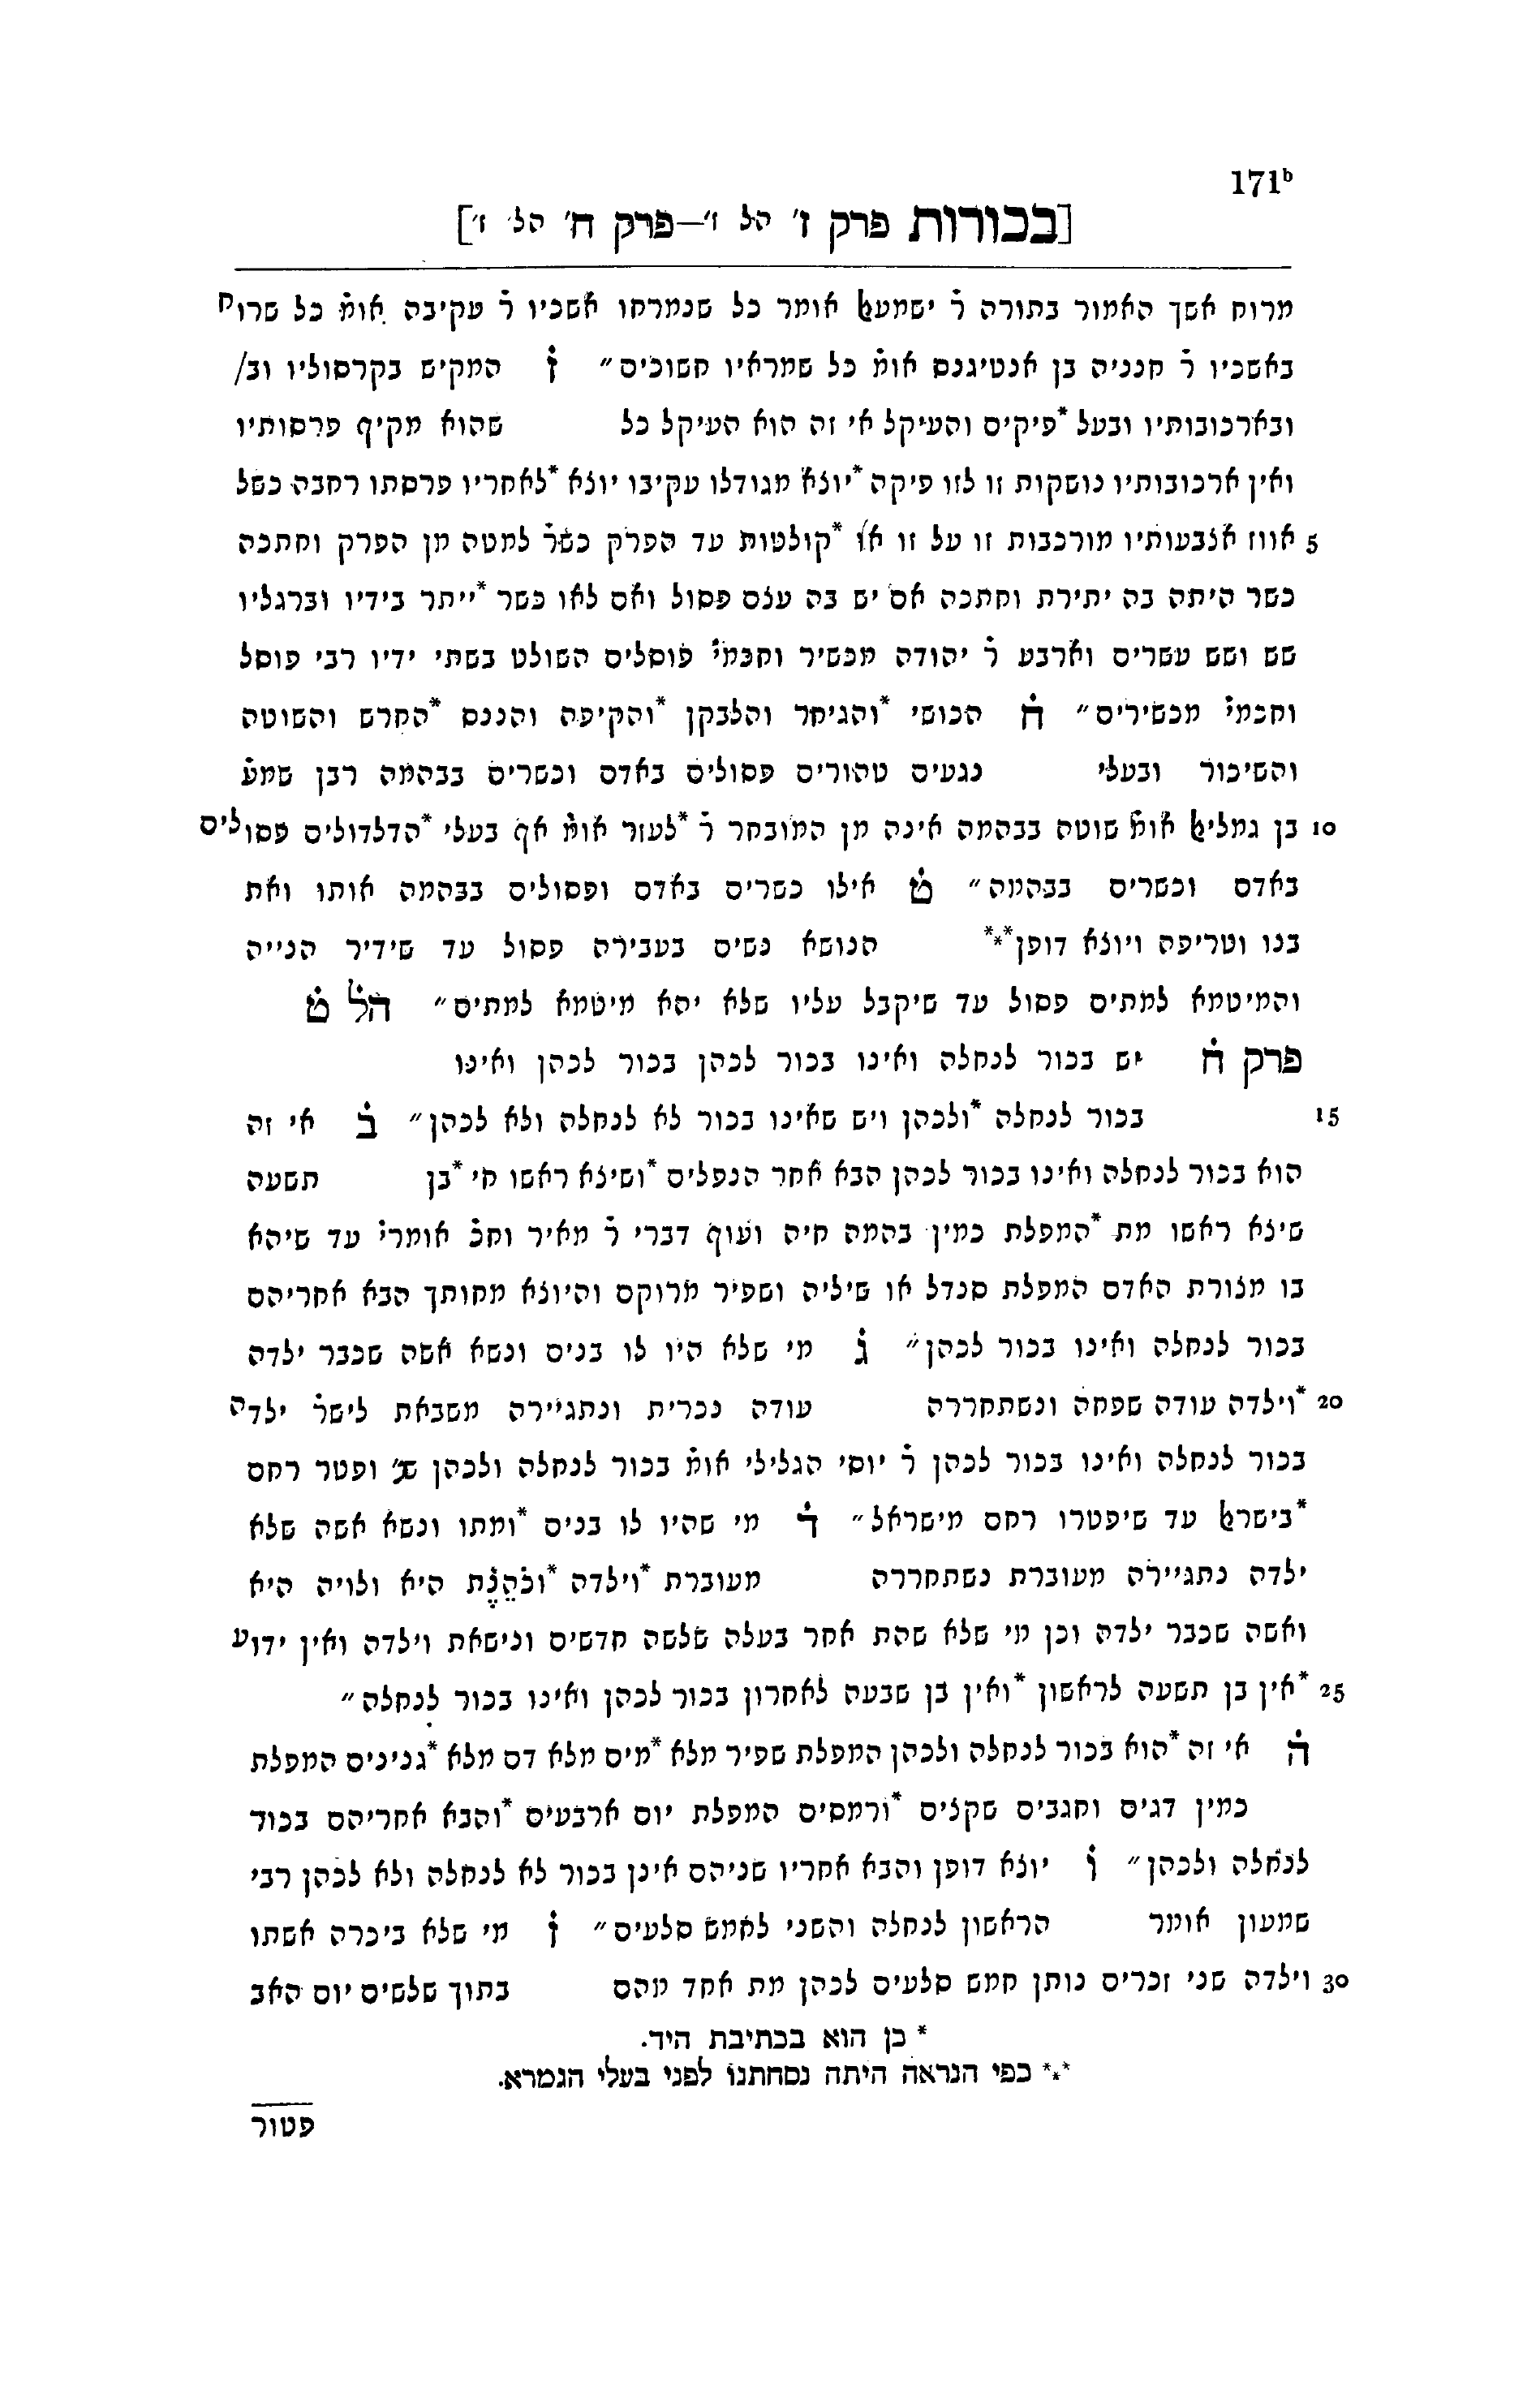 171b
[בכורות פרק ז' הל' ו'—פרק ח' הל' ז']
מרוח אשך האמור בתורה ר' ישמעאל אומר כל שנמרחו אשכיו ר' עקיבה אומ' כל שרוח
באשכיו ר' חנניה בן אנטיגנס אומ' כל שמראיו חשוכים״ ז המקיש בקרסוליו וב/
ובארכובותיו ובעל *פיקים והעיקל אי זה הוא העיקל כל שהוא מקיף פרסותיו
ואין ארכובותיו נושקות זו לזו פיקה *יוצא מגודלו עקיבו יוצא *לאחריו פרסתו רחבה כשל
5 אווז אצבעותיו מורכבות זו על זו או *קולטות עד הפרק כשר' למטה מן הפרק וחתכה
כשר היתה בה יתירת וחתכה אם יש בה עצם פסול ואם לאו כשר *ייתר בידיו וברגליו
שש ושש עשרים וארבע ר' יהודה מכשיר וחכמי' פוסלים השולט בשתי ידיו רבי פוסל
וחכמי' מכשירים״ ח הכושי *והגיחר והלבקן *והקיפה והננס *החרש והשוטה
והשיכור ובעלי נגעים טהורים פסולים באדם וכשרים בבהמה רבן שמע'
10 בן גמליאל אומ' שוטה בבהמה אינה מן המובחר ר' *לעזר אומ' אף בעלי *הדלדולים פסולים
באדם וכשרים בבהמה״ ט אילו כשרים באדם ופסולים בבהמה אותו ואת
בנו וטריפה ויוצא דופן*** הנושא נשים בעבירה פסול עד שידיר הנייה
והמיטמא למתים פסול עד שיקבל עליו שלא יהא מיטמא למתים״ הל' ט
פרק ח יש בכור לנחלה ואינו בכור לכהן בכור לכהן ואינו
15 בכור לנחלה *ולכהן ויש שאינו בכור לא לנחלה ולא לכהן״ ב אי זה
הוא בכור לנחלה ואינו בכור לכהן הבא אחר הנפלים *ושיצא ראשו חי *בן תשעה
שיצא ראשו מת *המפלת כמין בהמה חיה ועוף דברי ר' מאיר וחכ' אומרי' עד שיהא
בו מצורת האדם המפלת סנדל או שיליה ושפיר מרוקם והיוצא מחותך הבא אחריהם
בכור לנחלה ואינו בכור לכהן״ ג מי שלא היו לו בנים ונשא אשה שכבר ילדה
20 *וילדה עודה שפחה ונשתחררה עודה נכרית ונתגיירה משבאת לישר' ילדה
בכור לנחלה ואינו בכור לכהן ר' יוסי הגלילי אומ' בכור לנחלה ולכהן שנ' ופטר רחם
*בישראל עד שיפטרו רחם מישראל״ ד מי שהיו לו בנים *ומתו ונשא אשה שלא
ילדה נתגיירה מעוברת נשתחררה מעוברת *וילדה *וכֹהֵנֶת היא ולויה היא
ואשה שכבר ילדה וכן מי שלא שהת אחר בעלה שלשה חדשים ונישאת וילדה ואין ידוע
25 *אין בן תשעה לראשון *ואין בן שבעה לאחרון בכור לכהן ואינו בכור לנחלה״
ה אי זה *הוא בכור לנחלה ולכהן המפלת שפיר מלא *מים מלא דם מלא *גנינים המפלת
כמין דגים וחגבים שקצים *ורמסים המפלת יום ארבעים *והבא אחריהם בכור
לנחלה ולכהן״ ו יוצא דופן והבא אחריו שניהם אינן בכור לא לנחלה ולא לכהן רבי
שמעון אומר הראשון לנחלה והשני לחמש סלעים״ ז מי שלא ביכרה אשתו
30 וילדה שני זכרים נותן חמש סלעים לכהן מת אחד מהם בתוך שלשים יום האב
* כן הוא בכתיבת היד.
*** כפי הנראה היתה נסחתנו לפני בעלי הגמרא.
פטור